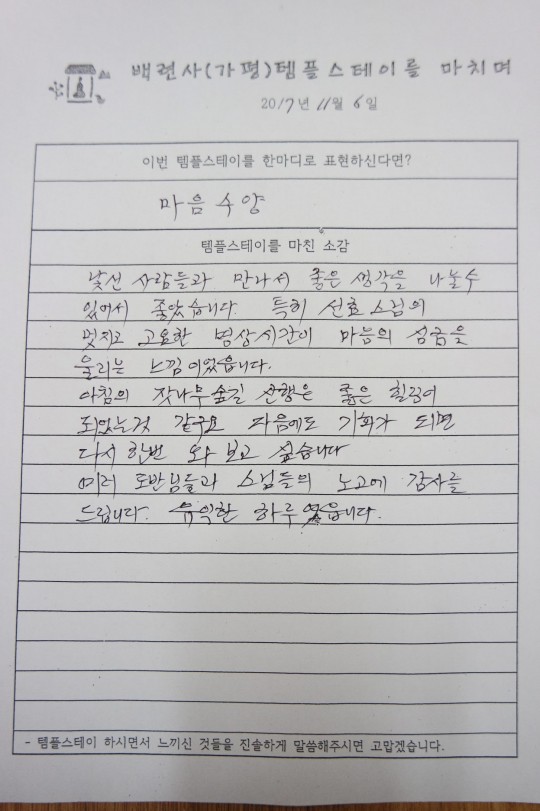 백련사(가평)템플스테이를 마치며
2017년 11월 6일
이번 템플스테이를 한마디로 표현하신다면?
마음수양
템플스테이를 마친 소감
낯선 사람들과 만나서 좋은 생각을 나눌수
있어서 좋았습니다. 특히 선효스님의
멋지고 고요한 명상시간이 마음의 심금을
울리는 느낌이었읍니다.
아침의 잣나무숲길 산행은 좋은 힐링이
되었는것 같구요 다음에도 기회가 되면
다시한번 와 보고 싶습니다
여러 도반님들과 스님들의 노고에 감사를
드립니다. 유익한 하루였읍니다.
- 템플스테이 하시면서 느끼신 것들을 진솔하게 말씀해주시면 고맙겠습니다.